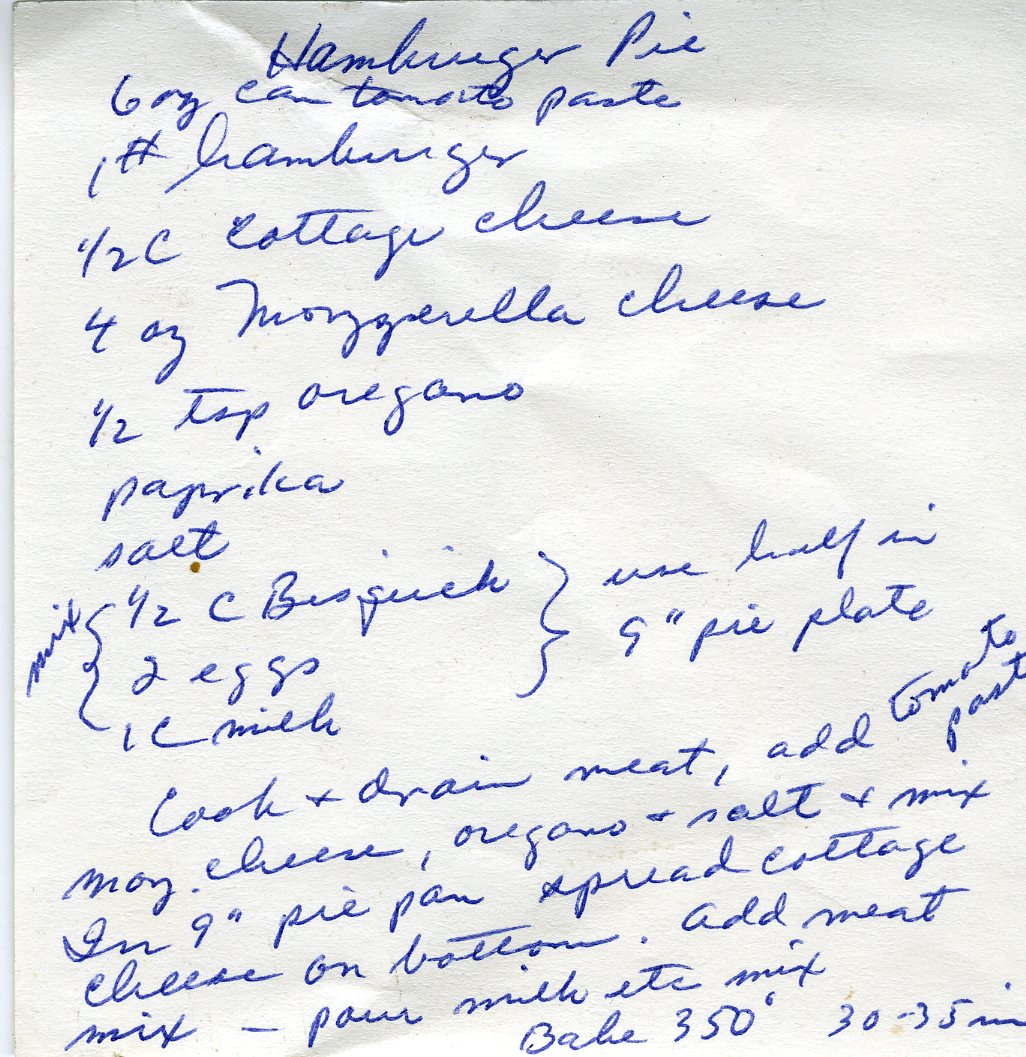 Hamburger Pie
6 oz can tomato paste
1# hamburger
1/2 C Cottage cheese
4 oz Mozzerella cheese
1/2 tsp oregano
paprika
salt
mix { 1/2 C Bisquick } use half in
2 eggs 9" pie plate
1 C milk
Cook + drain meat, add tomato past
moz. cheese, oregano + salt + mix
In 9" pie pan spread cottage
cheese on bottom. Add meat
mix – pour milk etc mix
Bake 350° 30-35 m